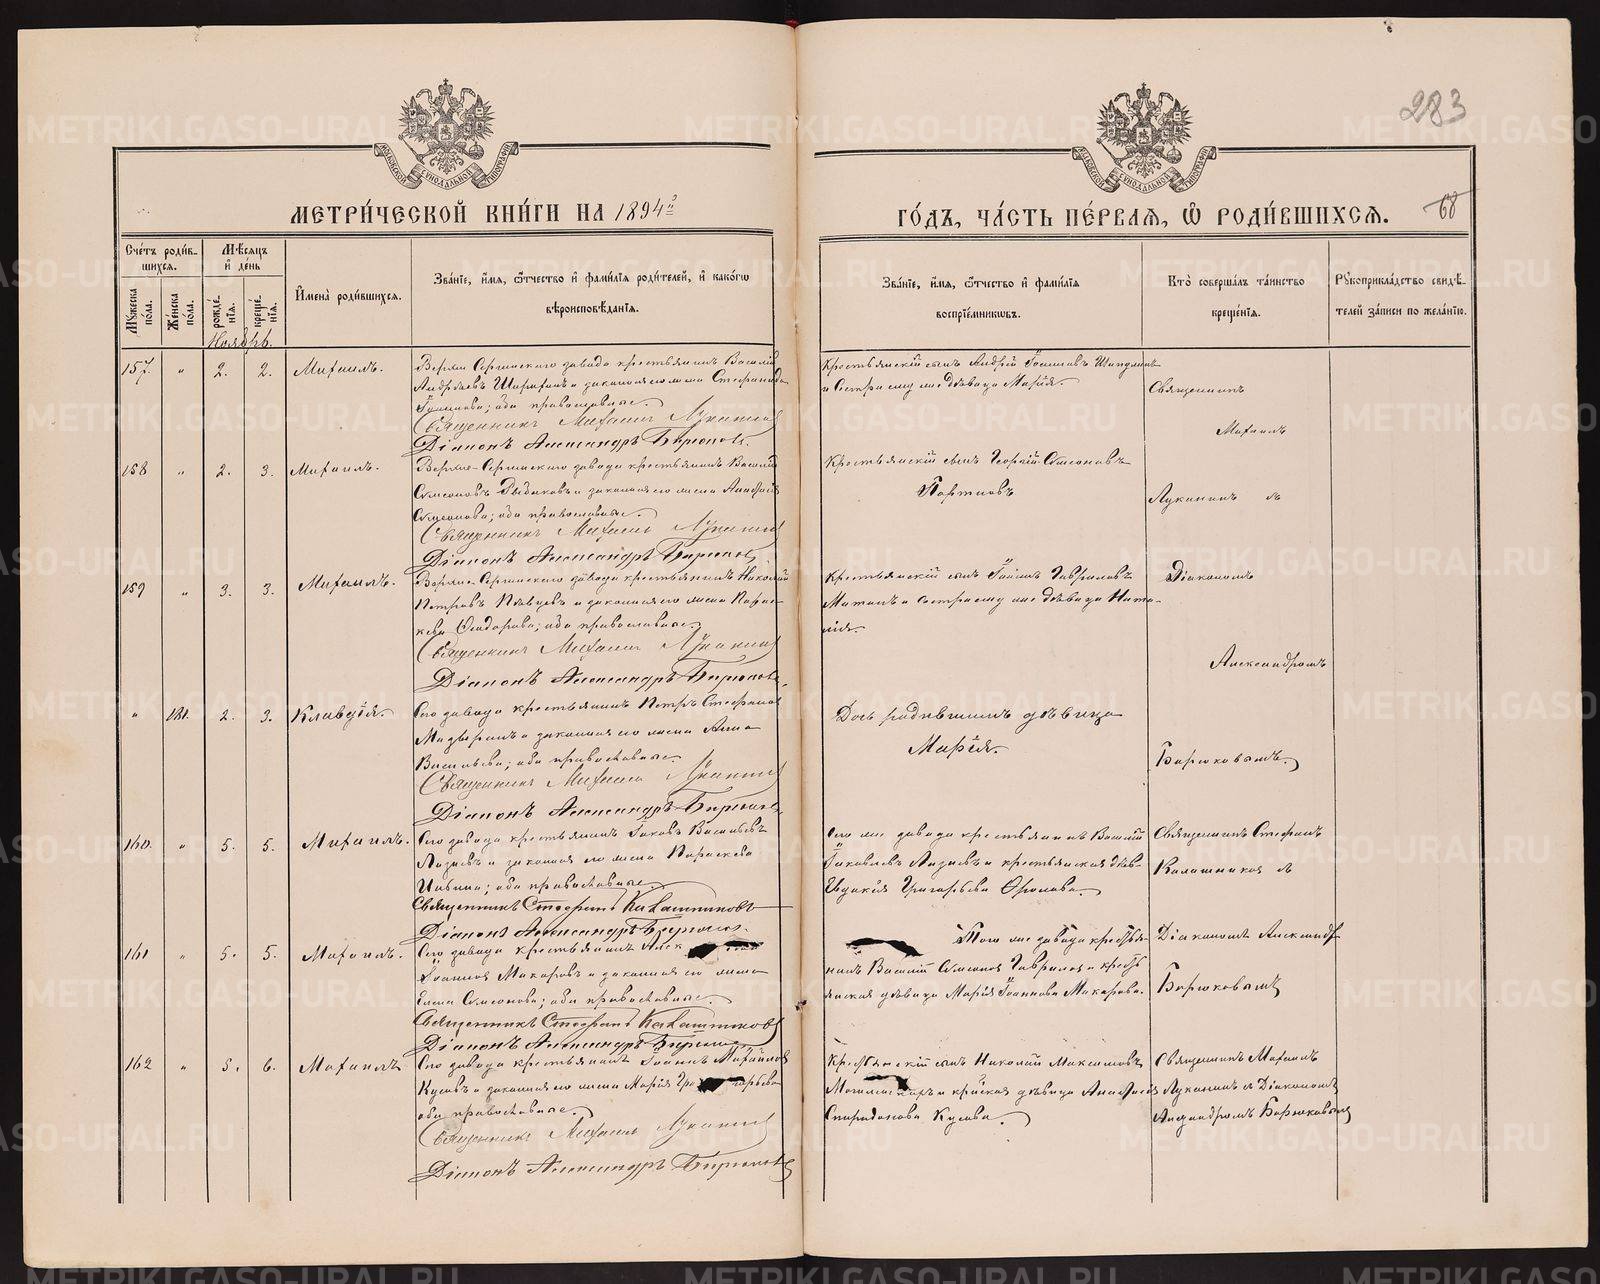 283
МОСКОВСКОЙ СѴНОДАЛЬНОЙ ТИПОГРАФІИ
МОСКОВСКОЙ СѴНОДАЛЬНОЙ ТИПОГРАФІИ
МЕТРИ́ЧЕСКОЙ КНИ́ГИ НА 1894
ГО́ДЪ, ЧА́СТЬ ПЕ́РВАЯ, Ѽ РОДИ́ВШИХСЯ.
68
Сче́тъ роди́вшихся.
Мѣ́сяцъ и҆ де́нь
Мꙋ́жеска по́ла.
Же́нска по́ла.
рожде́нїя.
креще́нїя.
И҆мена̀ роди́вшихся.
Зва́нїе, и҆́мя, ѻ҆́тчество и҆ фами́лїя роди́телей, и҆ како́гѡ
вѣроисповѣ́данїя.
Зва́нїе, и҆́мя, ѻ҆́тчество и҆ фами́лїя
воспрїе́мникѡвъ.
Кто̀ соверша́лъ та́инство
креще́нїя.
Рꙋкоприкла́дство свидѣ́телей за́писи по жела́нїю.
Ноябрь.
157. " 2. 2. Михаилъ.
Верхне Сергинскаго завода крестьянинъ Василій
Андреевъ и законная его жена Стефанида
Іоаннова; оба православные.
Священникъ Михаилъ Луканинъ
Діаконъ Александръ Бирюковъ.
Крестьянскій сынъ Андрей Іоанновъ
и сестра ему же дѣвица Марія.
Священникъ
Михаилъ
158 " 2. 3. Михаилъ.
Верхне-Сергинскаго завода крестьянинъ Василій
Симеоновъ и законная его жена Анастасія
Симеонова; оба православные.
Священникъ Михаилъ Луканинъ
Діаконъ Александръ Бирюковъ
Крестьянскій сынъ Георгій Симеоновъ
Портновъ
Луканинъ съ
159 " 3. 3. Михаилъ.
Верхне-Сергинскаго завода крестьянинъ Николай
Петровъ Пѣвцовъ и законная его жена Параскева Ѳеодорова; оба православные.
Священникъ Михаилъ Луканинъ
Діаконъ Александръ Бирюковъ.
Крестьянскій сынъ Іоаннъ Гавриловъ
и сестра ему же дѣвица Наталія.
Діакономъ
Александромъ
" 181. 2. 3. Клавдія.
Сего завода крестьянинъ Петръ Стефановъ
и законная его жена Анна
Васильева; оба православные.
Священникъ Михаилъ Луканинъ
Діаконъ Александръ Бирюковъ.
Дочь родившихъ дѣвица
Марія.
Бирюковымъ.
160. " 5. 5. Михаилъ.
Сего завода крестьянинъ Іаковъ Васильевъ
и законная его жена Параскева
оба православные.
Священникъ Стефанъ Калашниковъ
Діаконъ Александръ Бирюковъ.
Того же завода крестьянинъ Василій
Іаковлевъ и крестьянская дѣвица
Григорьева Фролова.
Священникъ Стефанъ
Калашниковъ съ
161 " 5. 5. Михаилъ.
Сего завода крестьянинъ
Іоанновъ Макаровъ и законная его жена
Елена Симеонова; оба православные.
Священникъ Стефанъ Калашниковъ
Діаконъ Александръ Бирюковъ
Того же завода крестьянинъ Василій Симеоновъ Гавриловъ и крестьянская дѣвица Марія Іоаннова Макарова.
Діакономъ Александромъ
Бирюковымъ
162 " 5. 6. Михаилъ
Сего завода крестьянинъ Іоаннъ Михайловъ
и законная его жена Марія
оба православные.
Священникъ Михаилъ Луканинъ
Діаконъ Александръ Бирюковъ
Крестьянскій сынъ Николай Максимовъ
дѣвица Анастасія
Спиридонова
Священникъ Михаилъ
Луканинъ съ Діакономъ
Александромъ Бирюковымъ
METRIKI.GASO-URAL.RU